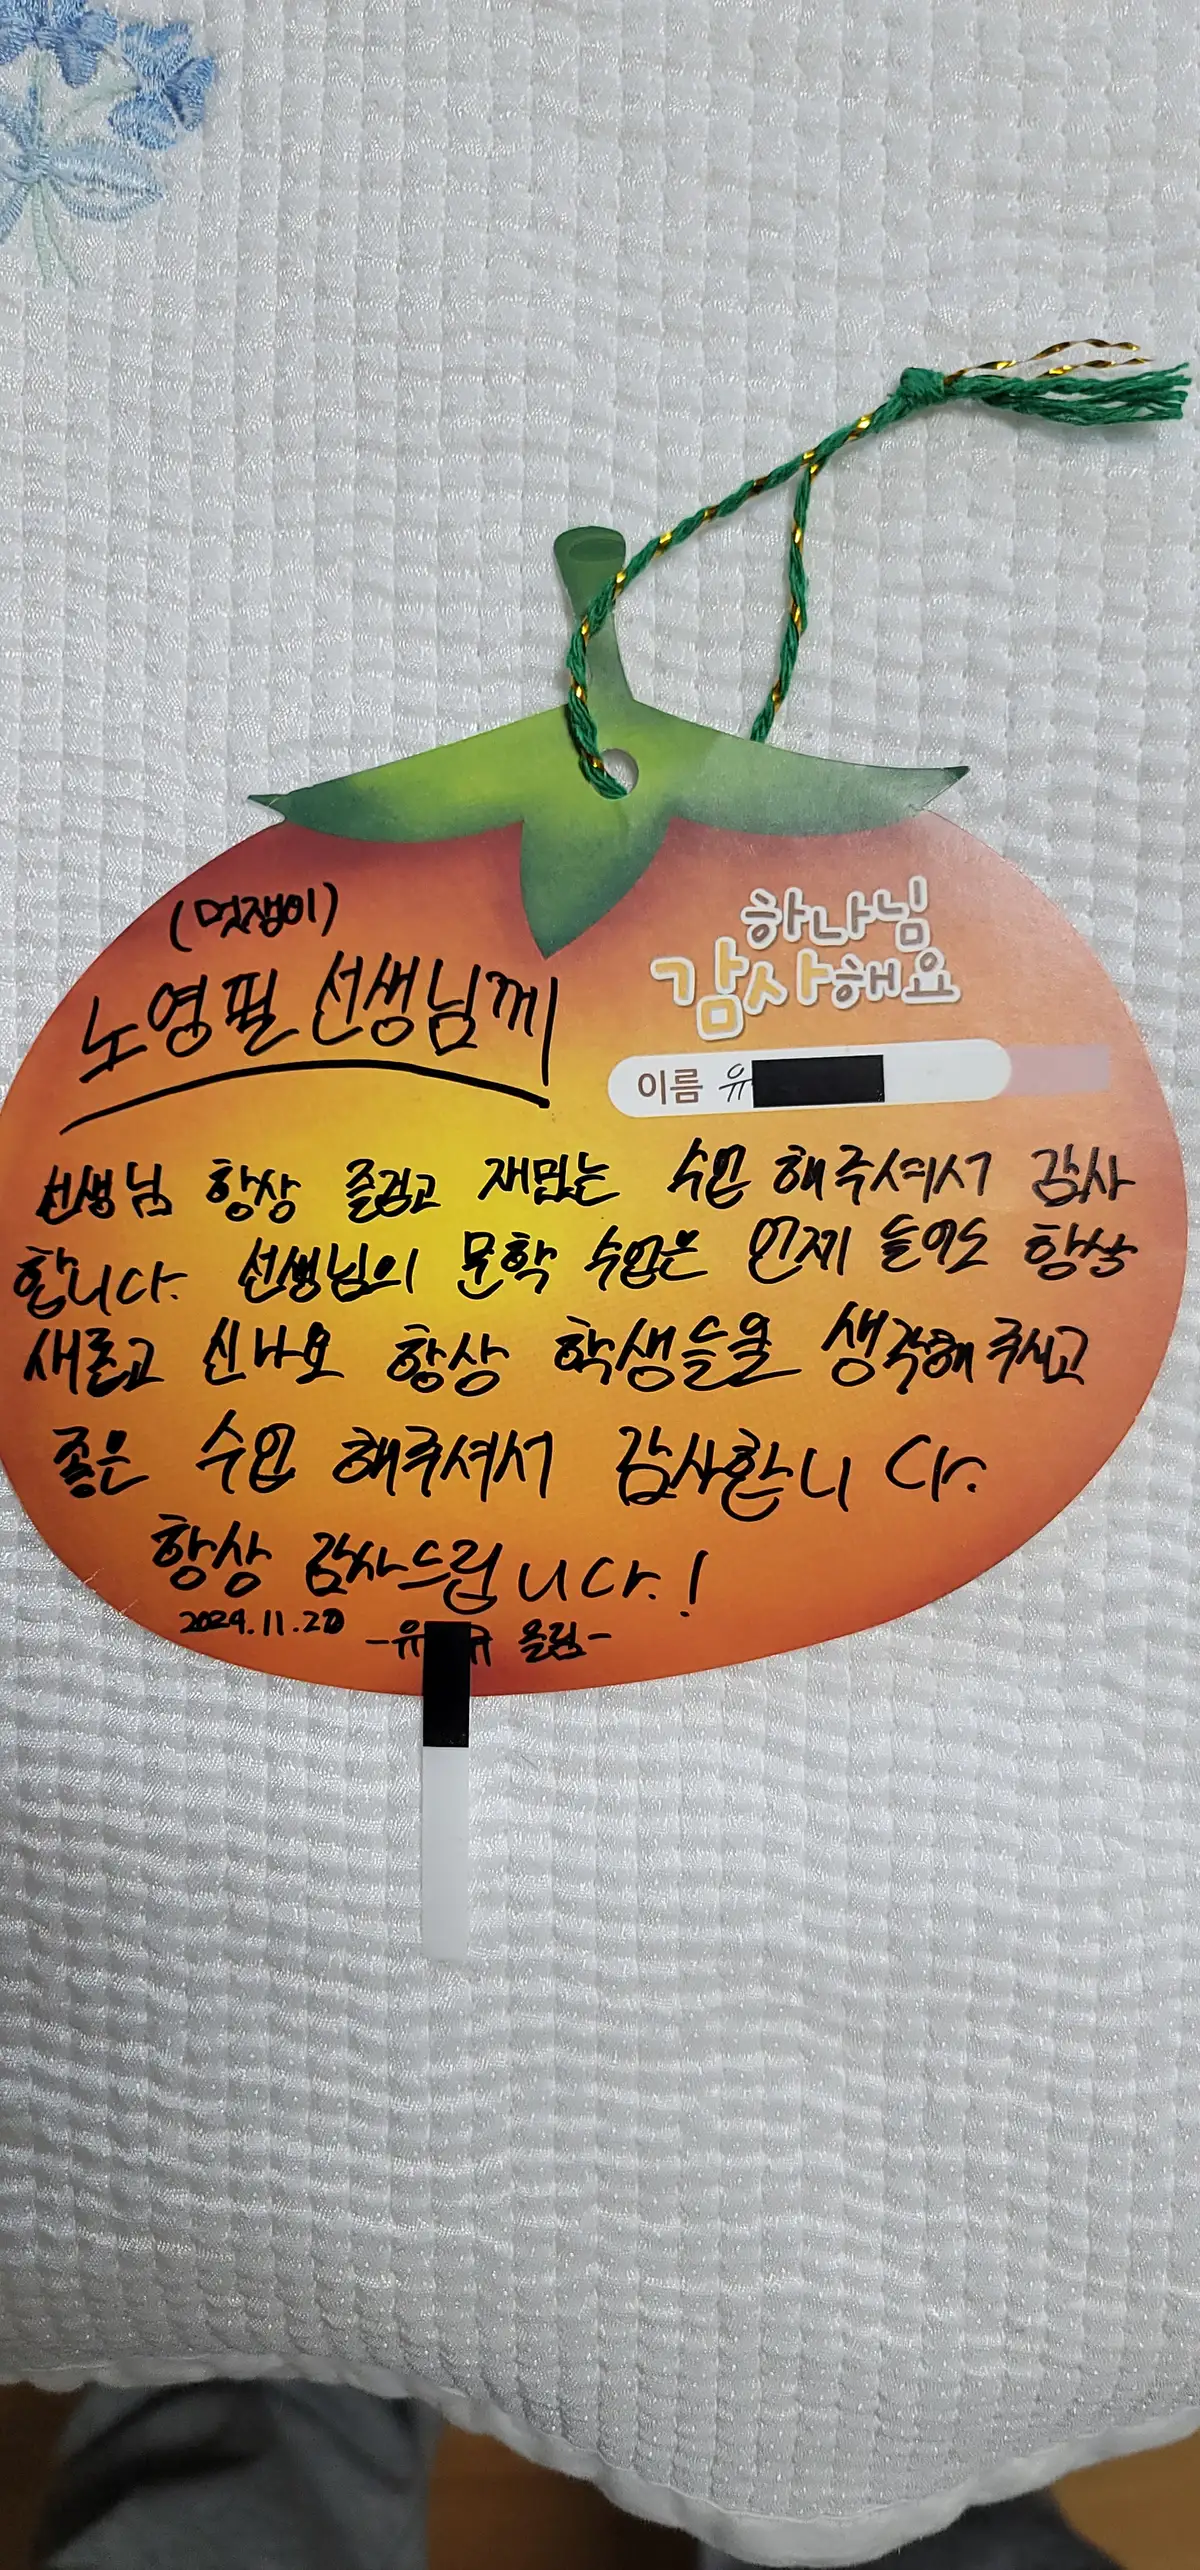 (멋쟁이)
노영필 선생님께
하나님
감사해요
이름 유
선생님 항상 즐겁고 재밌는 수업 해주셔서 감사
합니다. 선생님의 문학 수업은 언제 들어도 항상
새롭고 신나요 항상 학생들을 생각해 주시고
좋은 수업 해주셔서 감사합니다.
항상 감사드립니다.!
2024.11.20
-유 규 올림-